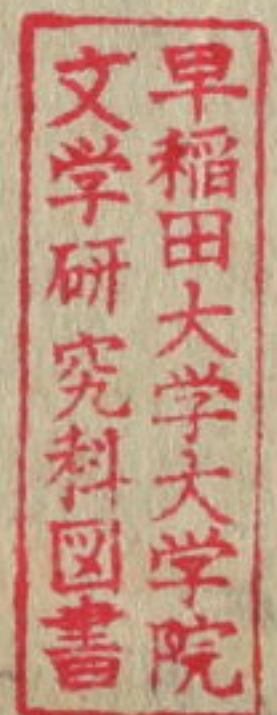 早稲田大学大学院
文学研究科図書